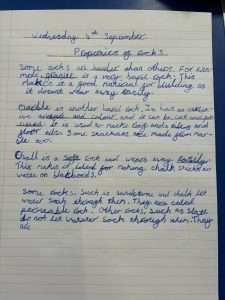 Wednesday 4th September
Properties of rocks.
Some rocks are harder than others. For exa
mple granite is a very hard rock. This
makes it a good material for building as
it doesnt wear away easily.
Marble is another hard rock. It has
and colour, and it can be cut and pol
ished. It is used to make and
floor tiles. Some are made from mar
ble too.
Chalk is a soft rock and wears away easily.
This makes it ideal for making chalk sticks to
write on blackbords.
Some rocks. Such as sandstone and chalk let
water soak through them. They are called
permeable rock. Other rocks, such as slate
do not let water soak through them. They
are